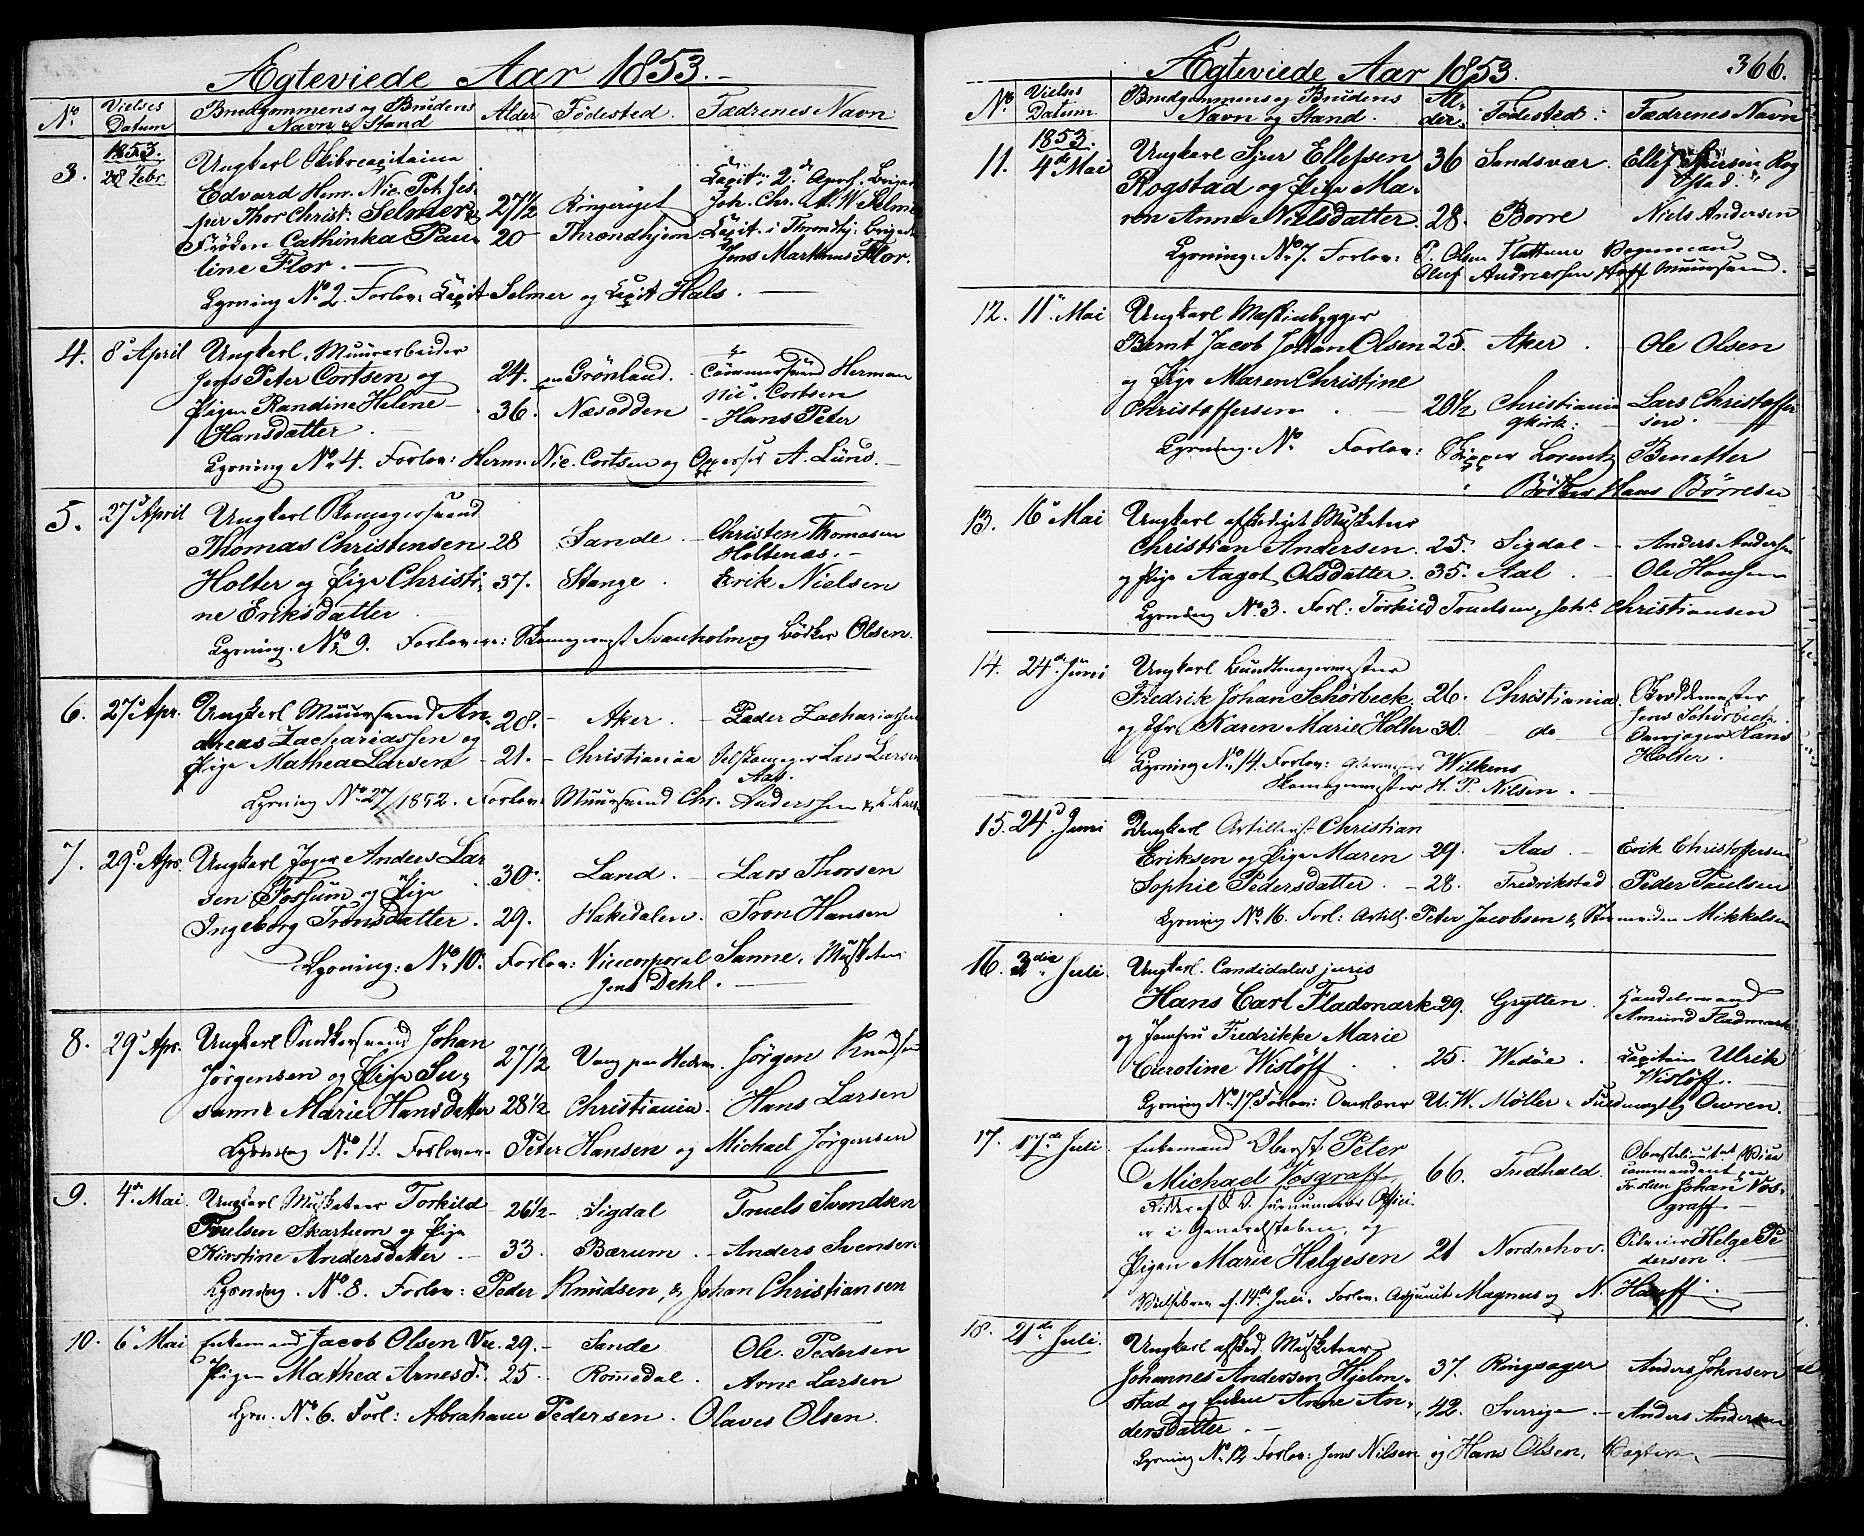 Ægteviede Aar 1853.
No. Vielses Datum Brudgommens og Brudens Navn og Stand Alder Fødested. Fædrenes Navn
1853.
3. 28 Febr. Ungkarl
Edvard Henr. Nic. Pet. Jes-
per Thor Christ: Selmer og 27 1/2 Ringeriget Joh. Chr. A. W. Selmer
Frøken Cathinka Pau- 20 Throndhjem Capit. i Throndhj. Brigade
line Flor. Jens Marthinus Flor.
Lysning No. 2. Forlov: Capit Selmer og Capit Hals.
4. 8 April Ungkarl, Muurarbeider
Jens Peter Cortsen og 24. Grønland. Herman
Nic. Cortsen
Pigen Randine Helene 36. Næsodden Hans Peter
Hansdatter
Lysning No. 4. Forlov: Herm. Nic. Cortsen og A. Lund.
5. 27 April Ungkarl Skomagersvend
Thomas Christensen 28 Sande Christen Thomasen
Holtenas.
Holter og Pige Christi- 37. Stange. Erik Nielsen
ne Eriksdatter
Lysning. No. 9. Forlovere: Svanholm og Bødker Olsen.
6. 27 Apr. Ungkarl Muursvend An- 28. Aker. Peder Zachariassen
dreas Zachariassen og
Pige Mathea Larsen 21. Christiania Lars Larsen
Aas.
Lysning No. 27/1852. Forlov: Muursvend Chr. Anderssen
7. 29 Apr. Ungkarl Jæger Anders Lar- 30. Land. Lars Thorsen
sen Fossum og Pige
Ingeborg Tronsdatter. 29. Hakedalen. Tron Hansen
Lysning: No. 10. Forlov: Vicecorporal Sanne, Musketeer
Jens Dahl.
8. 29 Apr. Ungkarl Snedkersvend Johan 27 1/2 Vang paa Hedem. Jørgen Knudsen
Jørgensen og Pige Su-
sanne Marie Hansdatter 28 1/2 Christiania. Hans Larsen
Lysning No. 11. Forlovere Peter Hansen og Michael Jørgensen
9. 4 Mai Ungkarl Musketeer Torkild 26 1/2 Sigdal Truels Svendsen
Truelsen Skartum og Pige
Kirstine Andersdatter 33. Bærum. Anders Svensen
Lysning. No. 8. Forlov: Peder Knudsen, & Johan Christiansen
10. 6 Mai Enkemand Jacob Olsen Vee 29. Sande Ole Pedersen
Pigen Mathea Arnesd. 25. Romedal. Arne Larsen
Lysn. No. 6. Forl: Abraham Pedersen. Olaves Olsen.
Ægteviede Aar 1853. 366.
No. Vielses Datum. Brudgommens og Brudens Navn og Stand. Al-der. Fødested. Fædrenes Navn
1853.
11. 4de Mai Ungkarl Sjur Ellefsen 36 Sandsvær. Ellef Rog-
Rogstad og Pige Ma- stad.
ren Anne Nielsdatter. 28. Borre Niels Andersen
Lysning. No. 7. Forlov: P. Olsen
Oluf Andreassen Hoff Muursvend.
12. 11 Mai Ungkarl Maskinbygger
Bernt Jacob Johan Olsen 25. Aker. Ole Olsen
og Pige Maren Christine
Christoffersen 20 1/2 Christiania Lars Christoffer-
sen.
Lysning. No. Forlov: Skipper Lorentz Benetter
Bødker Hans Børresen
13. 16 Mai Ungkarl afskediget Musketeer
Christian Andersen 25. Sigdal Anders Andersen
og Pige Aagot Olsdatter. 35. Aal Ole Hansen
Lysning No. 3. Forl: Torkild Truelsen, Joh. Christiansen
14. 24de Juni Ungkarl Bundtmagermester
Fredrik Johan Schørbeck 26. Christiania
Jens Schørbeck.
og Jfr. Karen Marie Holter 30. do Hans
Holter.
Lysning No. 14. Forlov: Wilkens
Skomagermester H. P. Nilsen.
15. 24 Juni Ungkarl Artillerist Christian
Eriksen og Pige Maren 29. Aas. Erik Christoffersen
Sophie Pedersdatter. 28. Fredrikstad Peder Paulsen
Lysning No. 16. Forl: Artill. Peter Jacobsen & Mikkelsen
16. 3die Juli. Ungkarl. Candidatus juris
Hans Carl Fladmark 29. Grytten. Handelsmand
Amund Fladmark
og Jomfru Fredrikke Marie
Caroline Wisløff 25. Wedøe. Capitain Ulrik
Wisløff.
Lysning No. 17. Forlov: Overlærer U. W. Møller & Fuldmægtig Owren.
17. 17de Juli. Enkemand Oberst Peter
Michael Vosgraff 66. Fredhald. Oberstlieutnant Vice
commandant paa
Johan Vos-
graff
Ridder af S. O. surnumerær Offici-
er i Generalstaben, og
Pigen Marie Helgesen 21 Nordrehov. Helge Pe-
dersen.
af 14de Juli. Forlov: Adjunct Magnus og N. Hauff.
18. 21de Juli. Ungkarl afsked. Musketeer
Johannes Andersen Hjelm- 37. Ringsager Anders Johnsen
stad og Enken Anne An- 42. Sverrige Anders Andersen
dersdatter.
Lysning No. 12 Forlov: Jens Nilsen og Hans Olsen, Vægtere